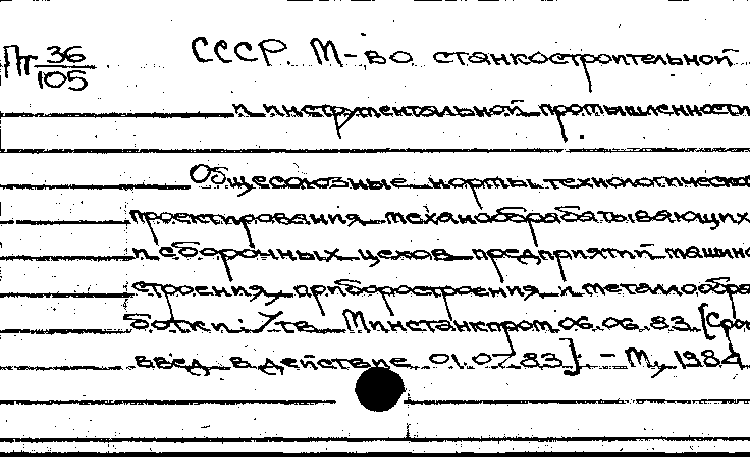 Пт 36/105
СССР. М-во станкостроительной
и инструментальной промышленности.
Общесоюзные нормы технологическо
проектирования механообрабатывающих
и сборочных цехов предприятий машино
строения, приборостроения и металлообра
ботки: Утв. Минстанкпром 06.06.83. [Срок
введ. в действие 01.07.83]. - М., 1984